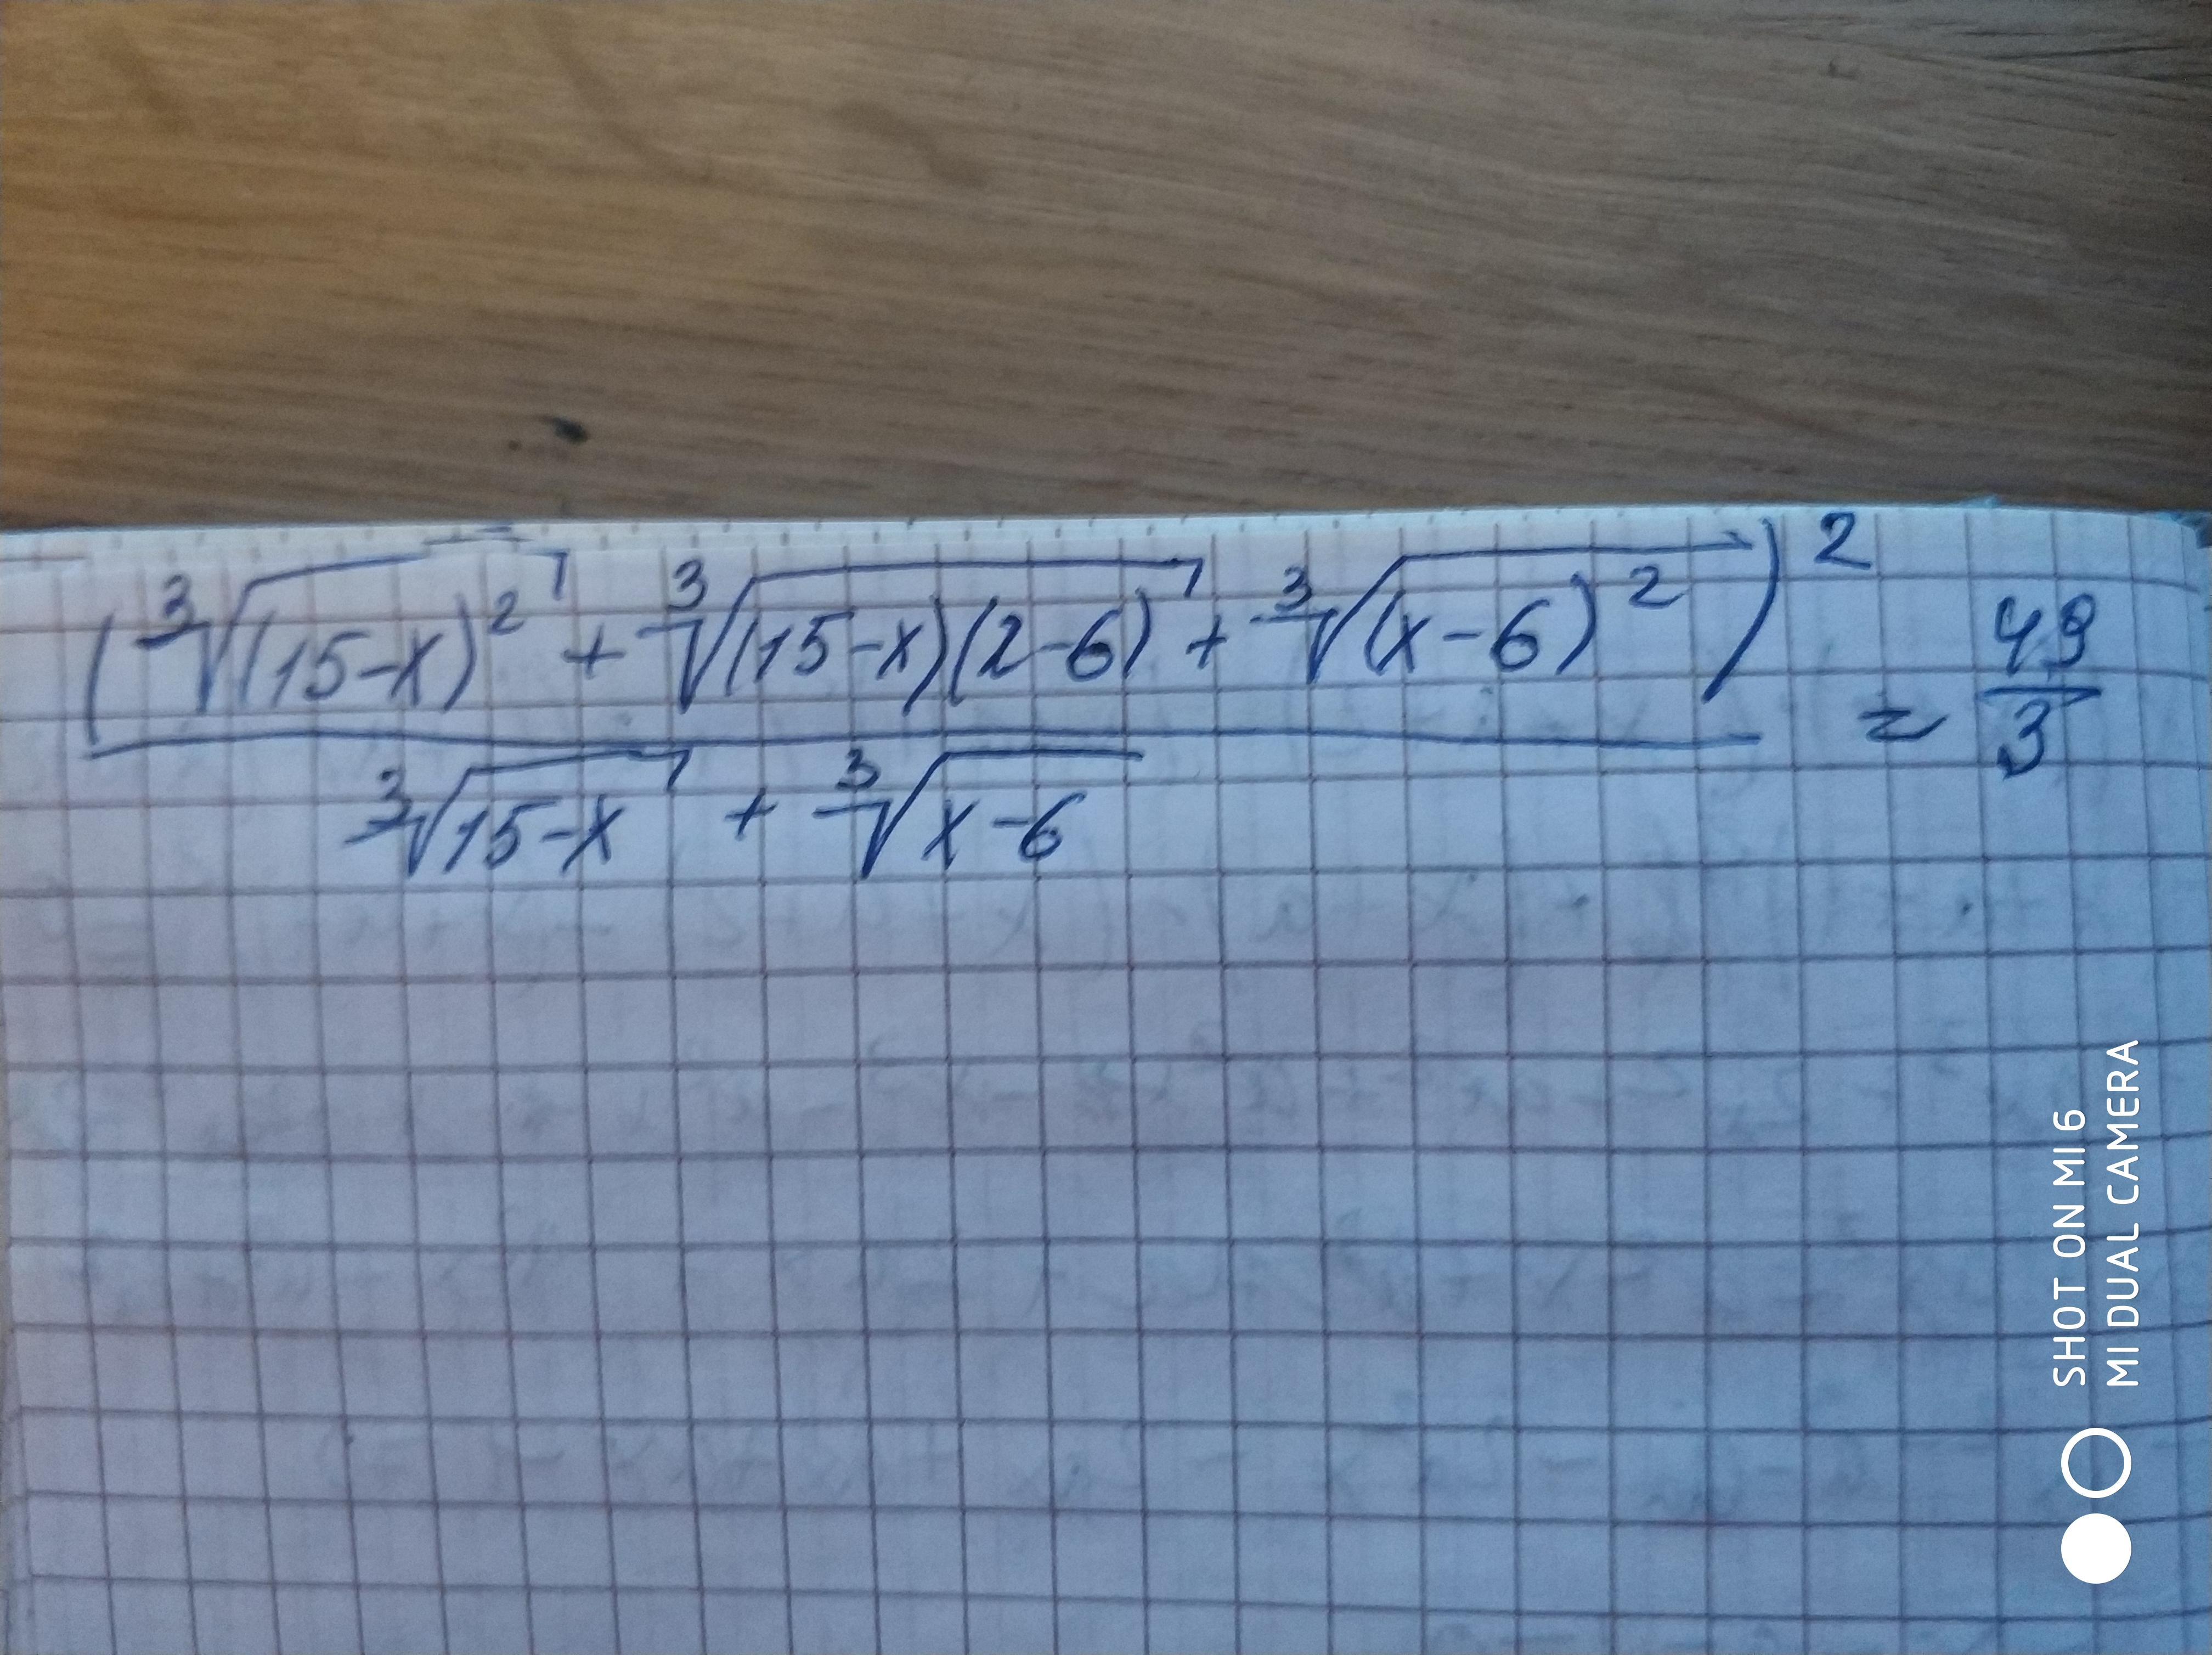 (∛(15-x)² + ∛(15-x)(2-6) + ∛(x-6)²)² / (∛15-x + ∛x-6) = 49/3
SHOT ON MI 6
MI DUAL CAMERA